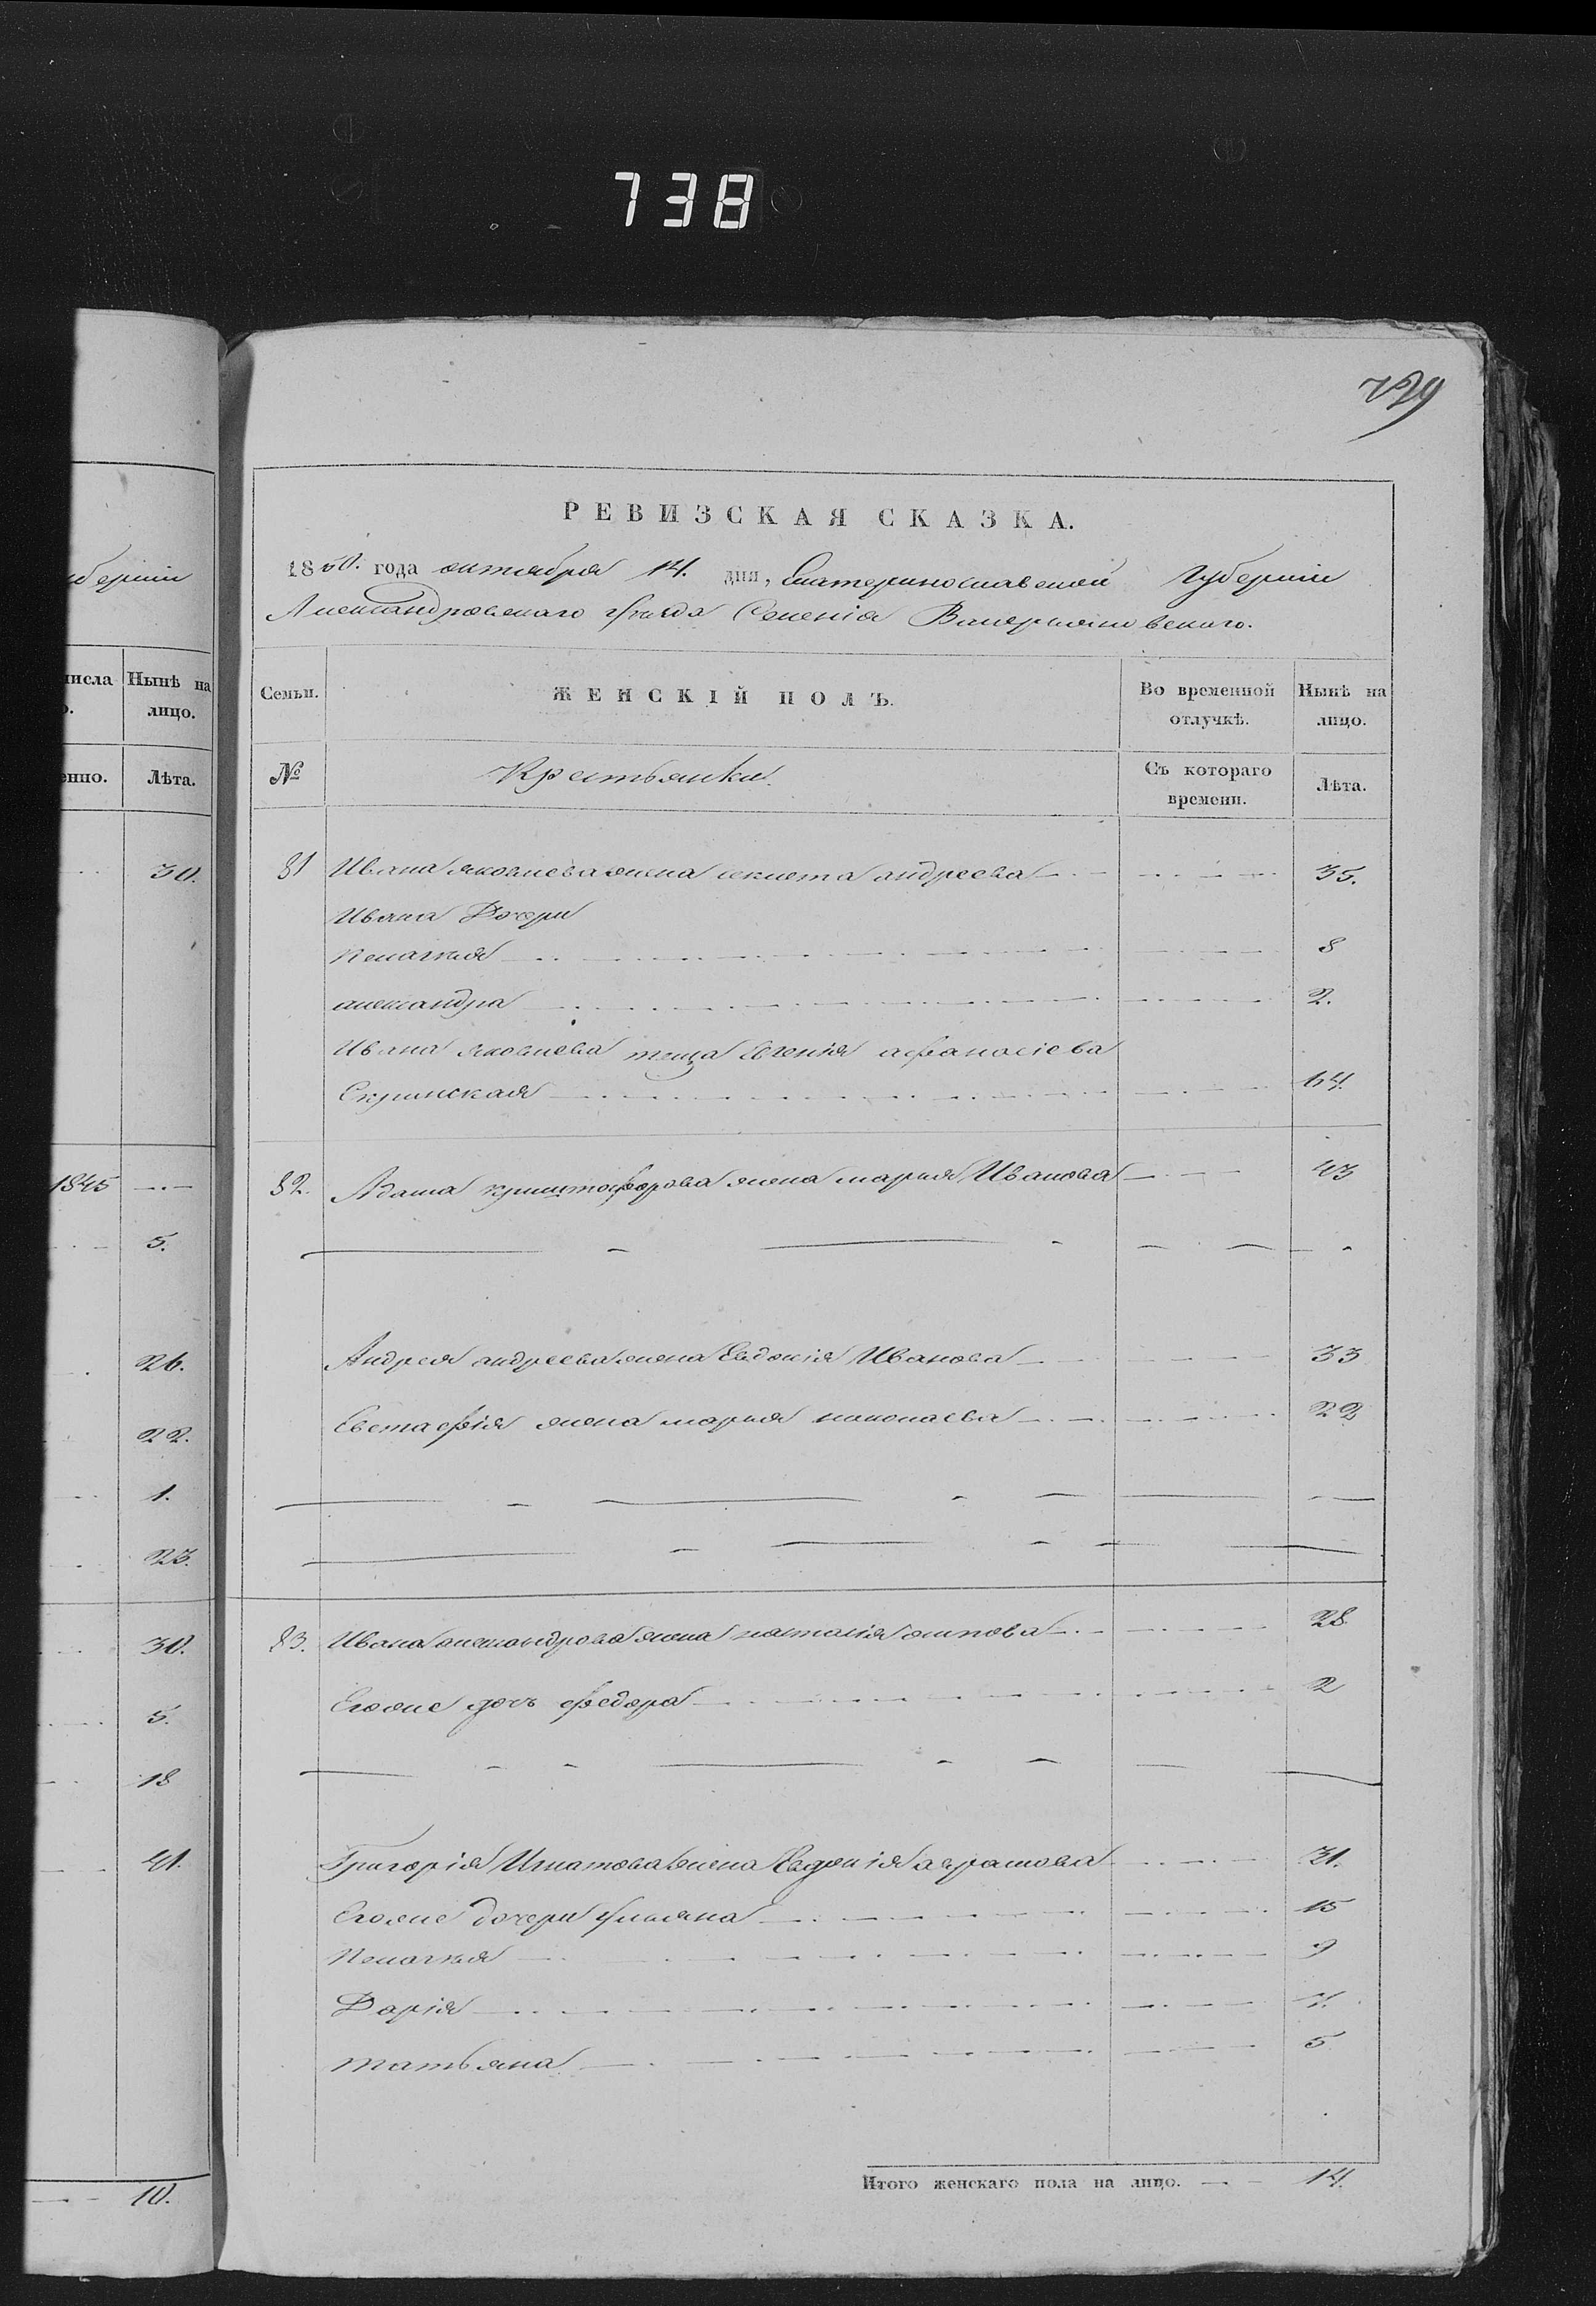 738
729
губерніи
числа
Нынѣ на
лицо.
Лѣта.
30.
1845
5.
26.
22.
1.
23.
30.
5.
18
41.
10.
РЕВИЗСКАЯ СКАЗКА.
1850. года октября 14. дня, Екатеринославской Губерніи
Александровскаго уѣзда Селенія Валерьяновскаго.
Семьи. ЖЕНСКІЙ ПОЛЪ. Во временной отлучкѣ. Нынѣ на лицо.
№ Крестьянки. Съ котораго времени. Лѣта.
81 Ивана яковлева жена андреева 35.
Ивана Дочери
Пелагия 8
александра 2.
Ивана яковлева теща Евгенія афанасіева
64.
82. Адама криштофорова жена мария Иванова 43
Андрея андреева жена Евдокія Иванова 33
Евстафія жена мария николаева 22
83. Ивана александрова жена наталия осипова 28
Егоже дочь федора 2
Григорія Игнатова жена Евдокія аврамова 31.
Егоже дочери ульяна 15
Пелагия 9
Дарія 7.
татьяна 5
Итого женскаго пола на лицо. 14.